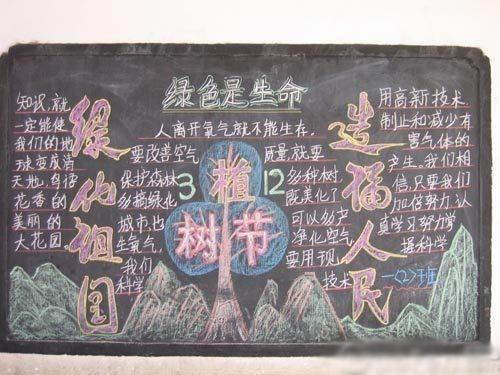 绿色是生命
人离开氧气就不能生存,
要改善空气
质量,就要
保护森林
3
植
12
多种树
乡描绿化
既美化了
城市,也
树节
可以多产
生氧气,
净化空气
我们
要用现
科学
技术
知识,就
一定能使
我们的地
球变成满
天地,鸟语
花香的
美丽的
大花园
绿化祖国
造福人民
用高新技术
制止和减少有
害气体的
产生。我们相
信,只要我们
加倍努力,认
真学习努力学
握科学
一〈2〉班